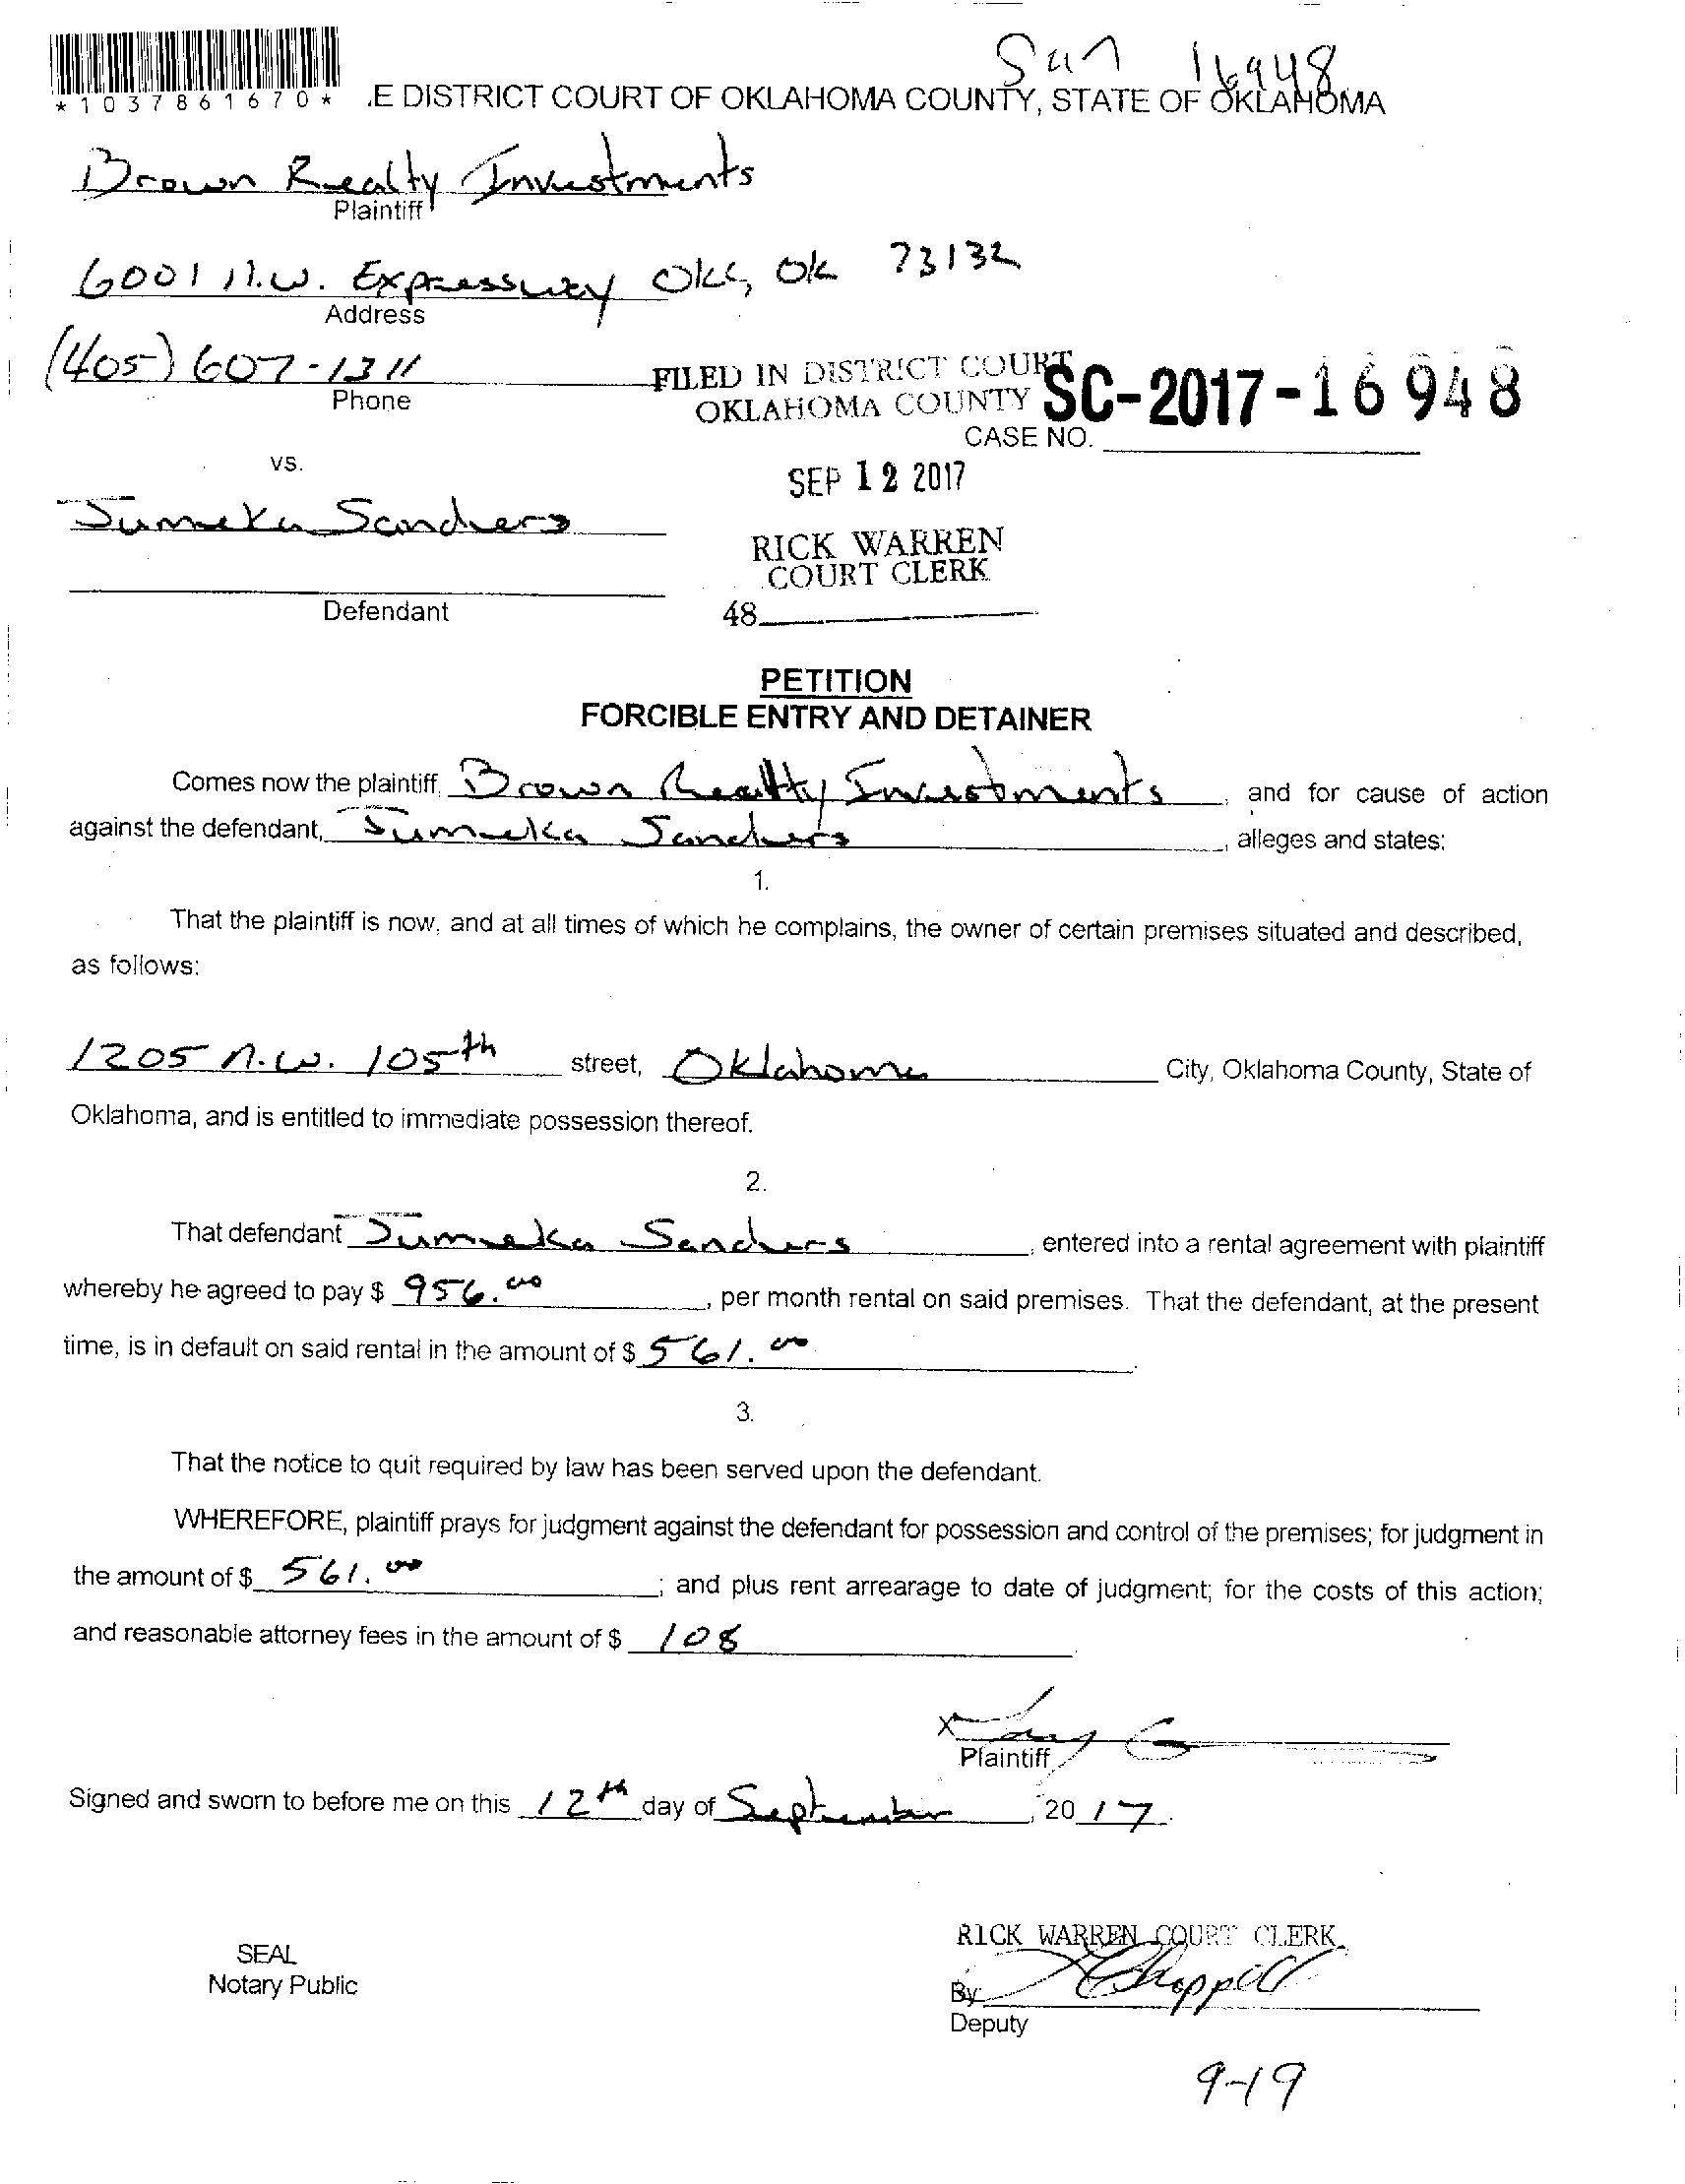 San 16948
*1037861670* .E DISTRICT COURT OF OKLAHOMA COUNTY, STATE OF OKLAHOMA
Brown Realty Investments
Plaintiff
6001 N.W. Expressway OKC, OK 73132
Address
(405) 607-1311
Phone
FILED IN DISTRICT COURT
OKLAHOMA COUNTY
SC-2017-16948
CASE NO.
vs.
SEP 12 2017
Jumeka Sanders
RICK WARREN
COURT CLERK
Defendant
48
PETITION
FORCIBLE ENTRY AND DETAINER
Comes now the plaintiff, Brown Realty Investments, and for cause of action
against the defendant, Jumeka Sanders, alleges and states:
1.
That the plaintiff is now, and at all times of which he complains, the owner of certain premises situated and described,
as follows:
1205 N.W. 105th street, Oklahoma City, Oklahoma County, State of
Oklahoma, and is entitled to immediate possession thereof.
2.
That defendant Jumeka Sanders, entered into a rental agreement with plaintiff
whereby he agreed to pay $ 956.00, per month rental on said premises. That the defendant, at the present
time, is in default on said rental in the amount of $ 561.00.
3.
That the notice to quit required by law has been served upon the defendant.
WHEREFORE, plaintiff prays for judgment against the defendant for possession and control of the premises; for judgment in
the amount of $ 561.00; and plus rent arrearage to date of judgment; for the costs of this action;
and reasonable attorney fees in the amount of $ 108
X
Plaintiff
Signed and sworn to before me on this 12th day of September, 2017.
RICK WARREN COURT CLERK
SEAL
Notary Public
By:
Deputy
9-19